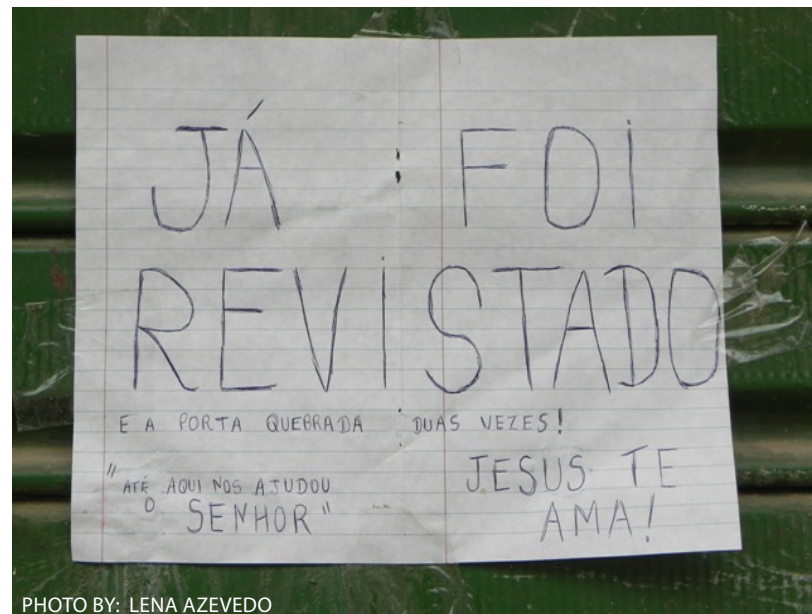 JÁ FOI
REVISTADO
E A PORTA QUEBRADA DUAS VEZES!
"ATÉ AQUI NOS AJUDOU
O SENHOR"
JESUS TE
AMA!
PHOTO BY: LENA AZEVEDO